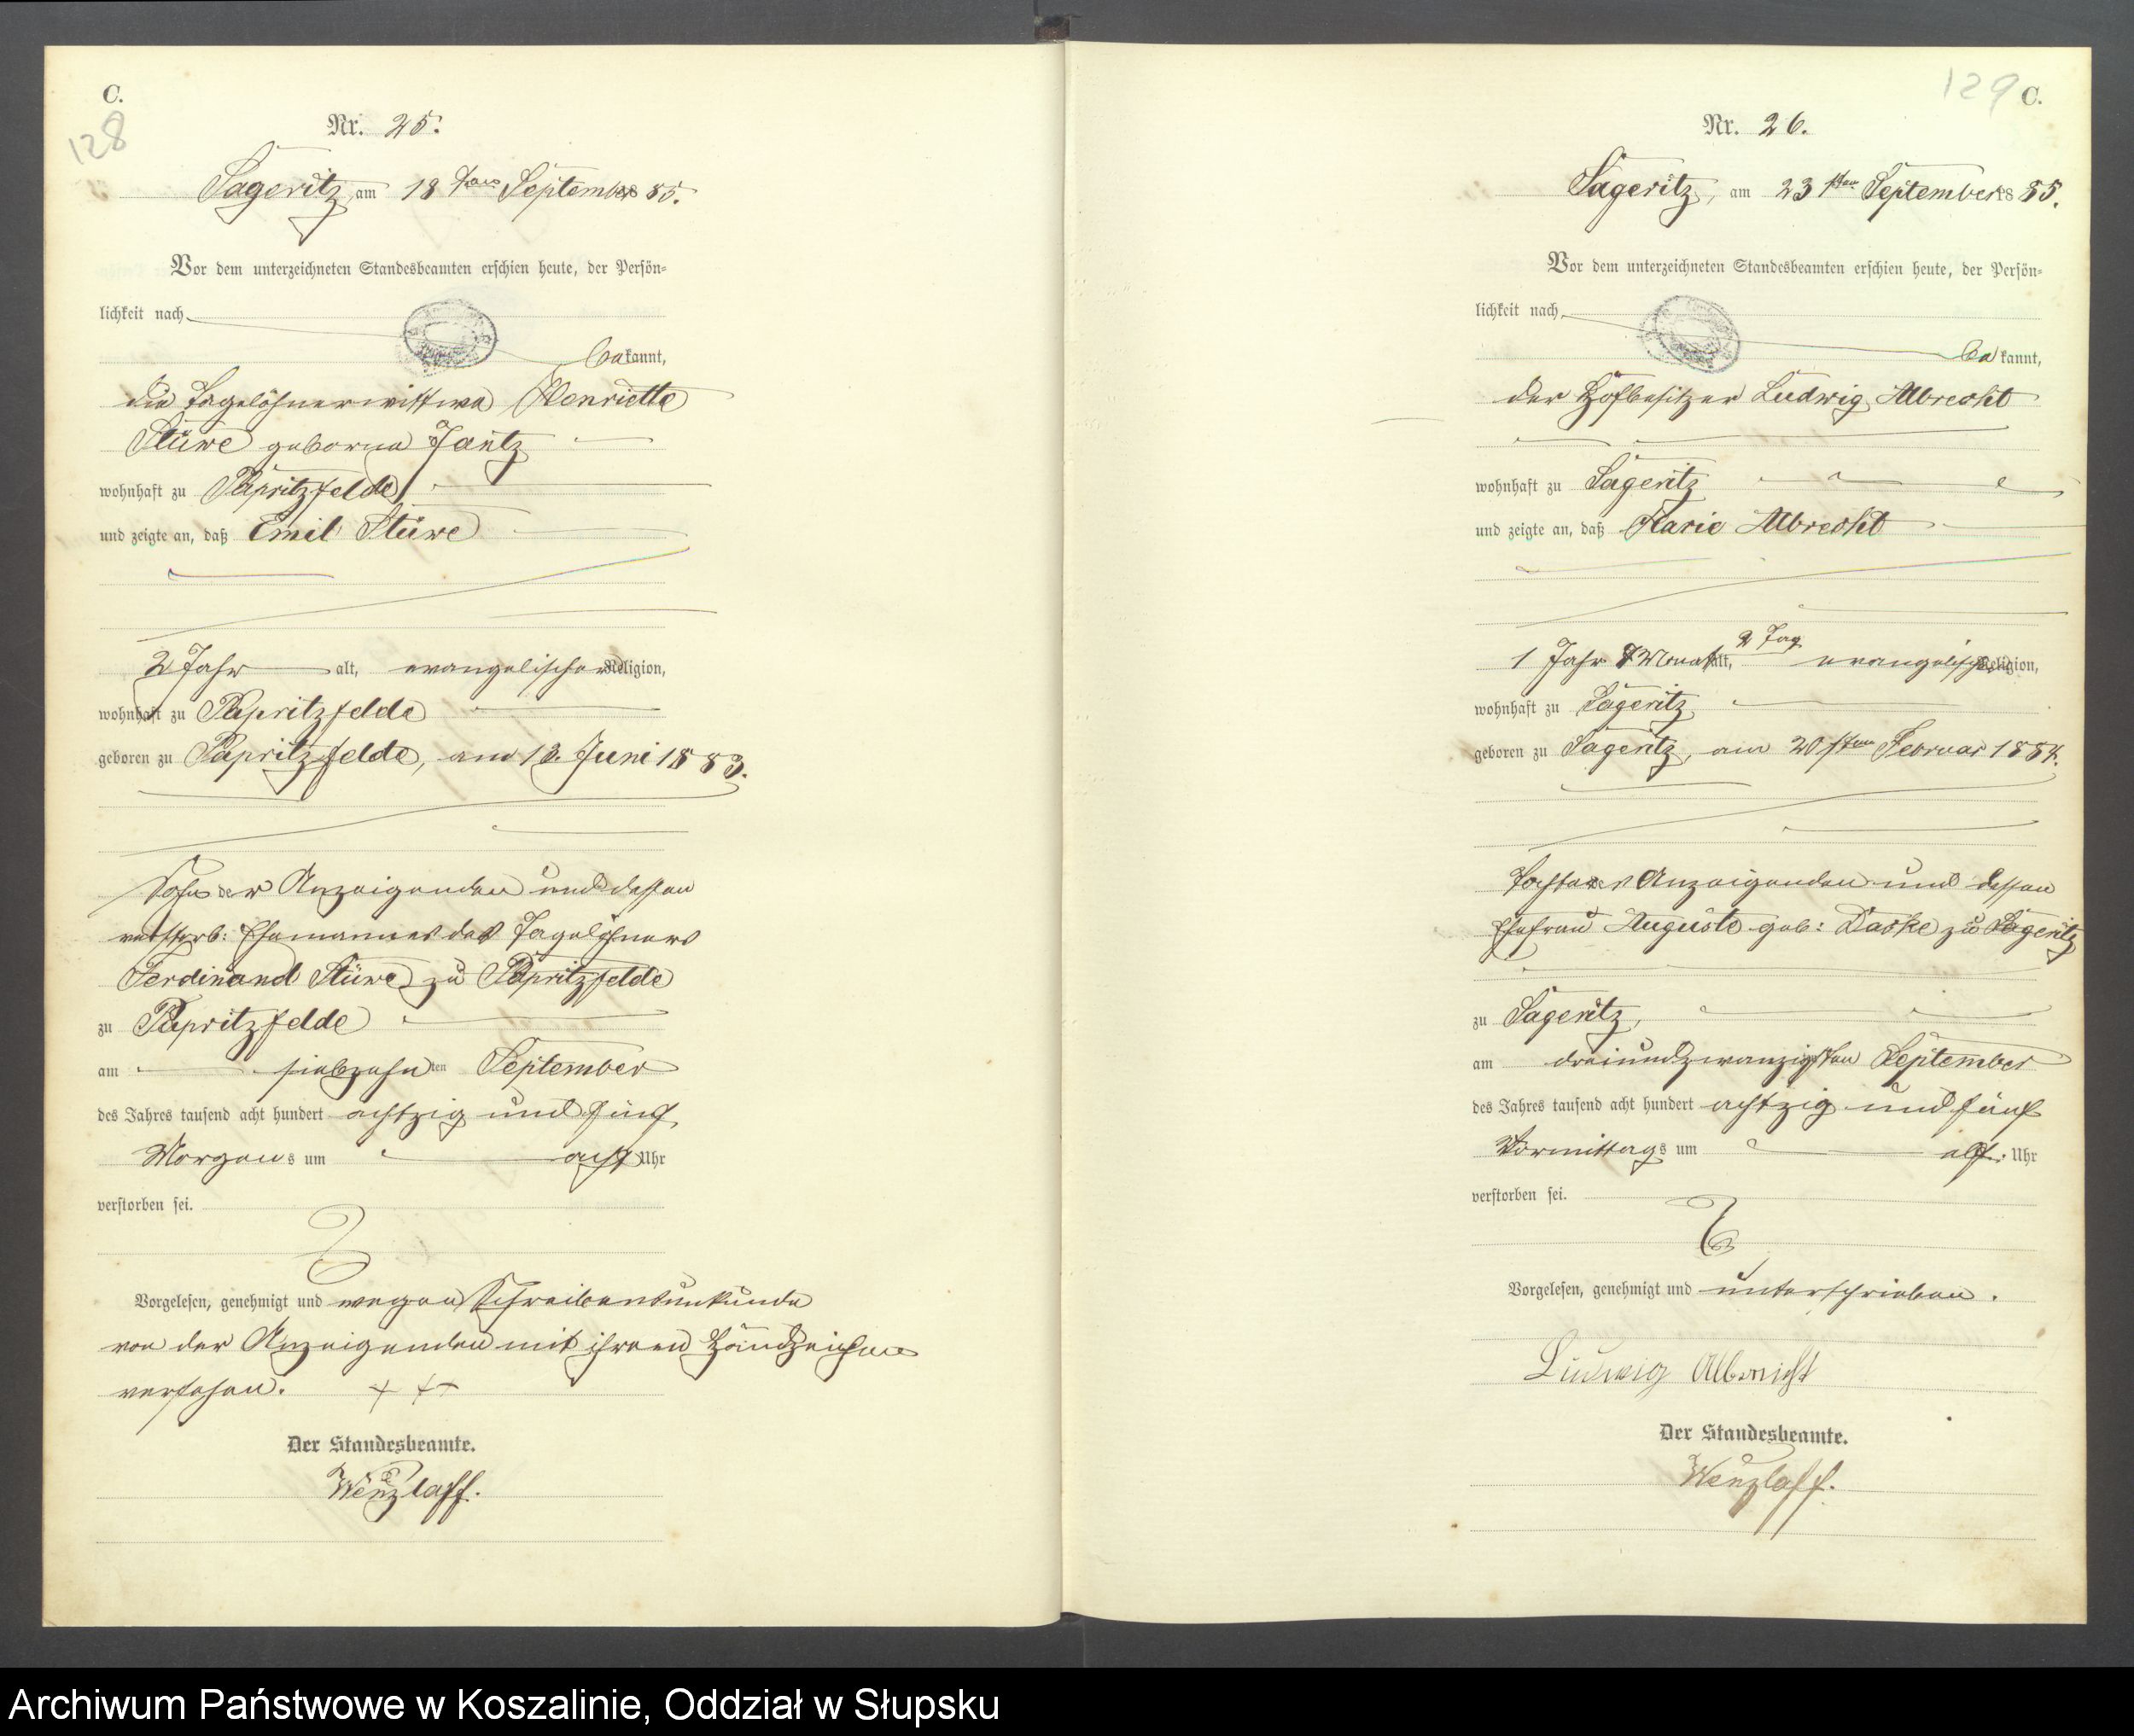 C.
128
Nr. 25.
Sageritz, am 18 ten September 1885.
Vor dem unterzeichneten Standesbeamten erschien heute, der Persön-
lichkeit nach
bekannt,
die Tagelöhnerwittwe Henriette
Stüwe geborne Jantz
wohnhaft zu Papritzfelde,
und zeigte an, daß Emil Stüwe
2 Jahr alt, evangelischer Religion,
wohnhaft zu Papritzfelde
geboren zu Papritzfelde, am 13. Juni 1883.
Sohn der Anzeigenden und dessen
verstorb: Ehemannes des Tagelöhners
Ferdinand Stüwe zu Papritzfelde
zu Papritzfelde
am siebzehnten September
des Jahres tausend acht hundert achtzig und fünf
Morgens um acht Uhr
verstorben sei.
Vorgelesen, genehmigt und wegen Schreibensunkunde
von der Anzeigenden mit ihrem Handzeichen
versehen. + + +
Der Standesbeamte.
Wenzlaff.
129 C.
Nr. 26.
Sageritz, am 23 sten September 1885.
Vor dem unterzeichneten Standesbeamten erschien heute, der Persön-
lichkeit nach
bekannt,
der Hofbesitzer Ludwig Albrecht
wohnhaft zu Sageritz
und zeigte an, daß Marie Albrecht
2 Tag
1 Jahr 7 Monat alt, evangelischer Religion,
wohnhaft zu Sageritz
geboren zu Sageritz, am 20 sten Februar 1884.
Tochter des Anzeigenden und dessen
Ehefrau Auguste geb: Daske zu Sageritz
zu Sageritz,
am dreiundzwanzigsten September
des Jahres tausend acht hundert achtzig und fünf
Vormittags um elf Uhr
verstorben sei.
Vorgelesen, genehmigt und unterschrieben.
Ludwig Albrecht
Der Standesbeamte.
Wenzlaff.
Archiwum Państwowe w Koszalinie, Oddział w Słupsku